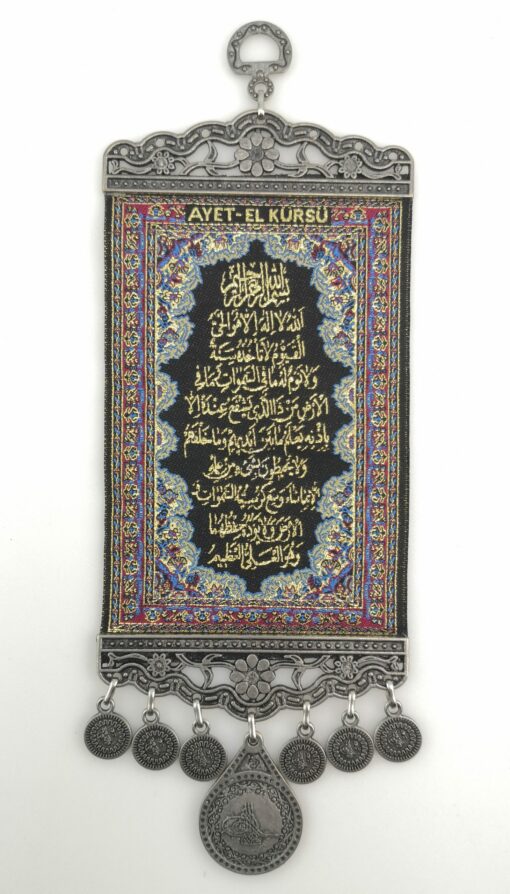 AYET-EL KÜRSÜ
بسم الله الرحمن الرحيم
الله لا اله الا هو الحي
القيوم لا تأخذه سنة
ولا نوم له ما في السموات وما في
الارض من ذا الذي يشفع عنده الا
باذنه يعلم ما بين ايديهم وما خلفهم
ولا يحيطون بشئ من علمه
الا بما شاء وسع كرسيه السموات
والارض ولا يؤده حفظهما
وهو العلي العظيم